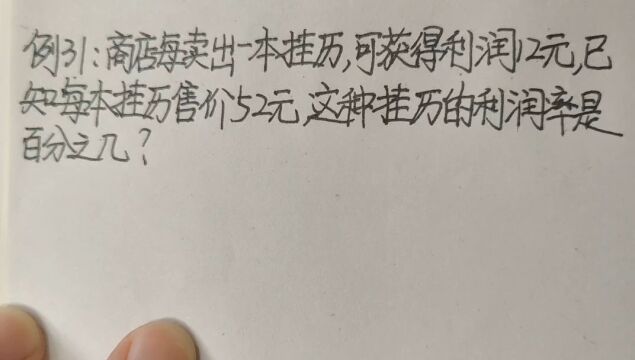 例31:商店每卖出一本挂历,可获得利润12元,已
知每本挂历售价52元,这种挂历的利润率是
百分之几?